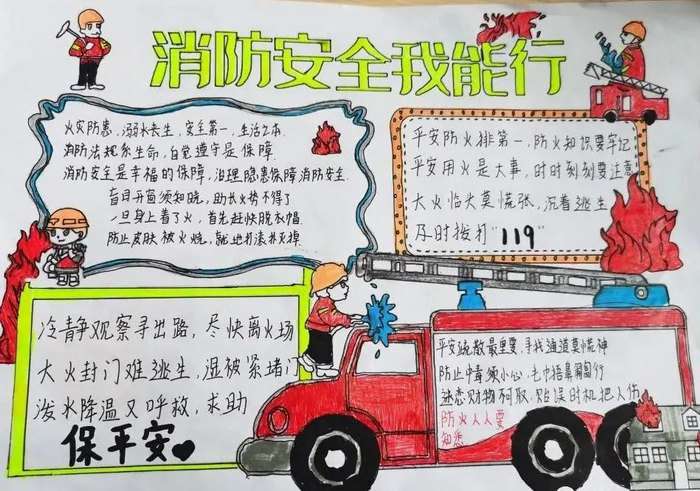 消防安全我能行
火灾防患,溺水长生,安全第一,生活之本.
消防法规系生命,自觉遵守是保障.
消防安全是幸福的保障,治理隐患保障消防安全.
盲目开窗须知晓,助长火势不得了
一旦身上着了火,首先赶快脱衣帽
防止皮肤被火烧,就地打滚扑灭掉
平安防火排第一,防火知识要牢记
平安用火是大事,时时刻刻要注意
大火临头莫慌张,沉着逃生
及时拨打"119"
冷静观察寻出路,尽快离火场
大火封门难逃生,湿被紧堵门
泼水降温又呼救,求助
保平安
平安疏散最重要,寻找通道莫慌神
防止中毒须小心,毛巾捂鼻匍匐行
迷恋财物不可取,贻误时机把人伤
防火人人要
知悉